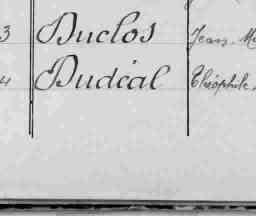 3 Duclos Jean-M
4 Dudéal Théophile